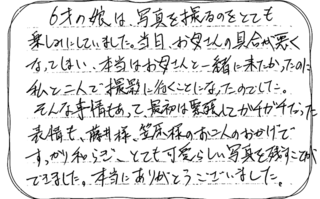 6才の娘は、写真を撮るのをとても
楽しみにしていました。当日、お母さんの具合が悪く
なってしまい、本当はお母さんと一緒に来たかったのに
私と二人で撮影に行くことになったのでした。
そんな事情もあって、最初は緊張してガチガチだった
表情も、藤井様、笠原様のお二人のおかげで
すっかり和らぎ、とても可愛らしい写真を残すことが
できました。本当にありがとうございました。